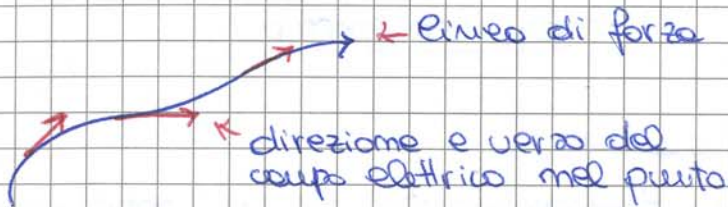 linea di forza
direzione e verso del
campo elettrico nel punto